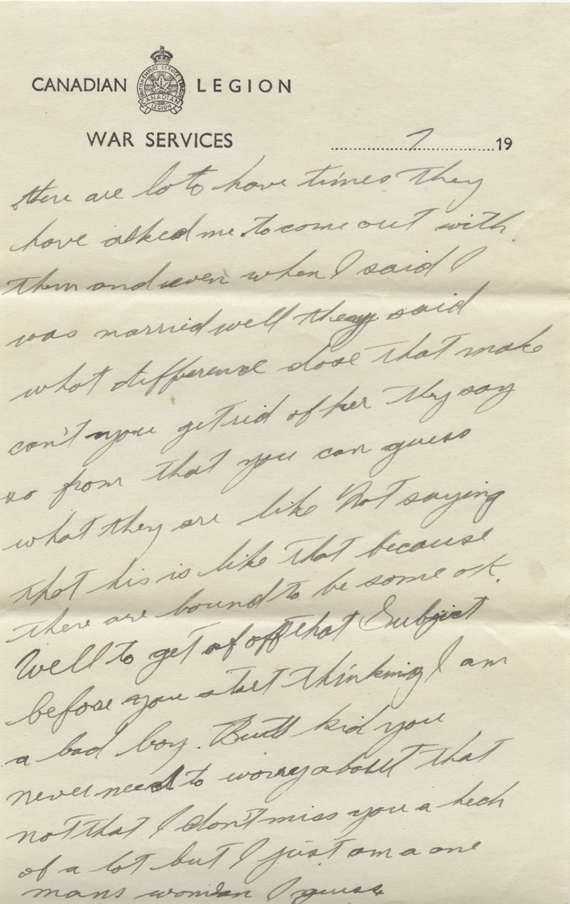 CANADIAN LEGION
WAR SERVICES
7 19
there are lots have times they
have asked me to come out with
them and even when I said I
was married well they said
what difference dose that make
can't you get rid of her they say
so from that you can guess
what they are like Not saying
that his is like that because
there are bound to be some ok.
Well to get of off that Subject
before you start thinking I am
a bad boy. But kid you
never need to worry about that
not that I don't miss you a heck
of a lot but I just am a one
mans woman I guess